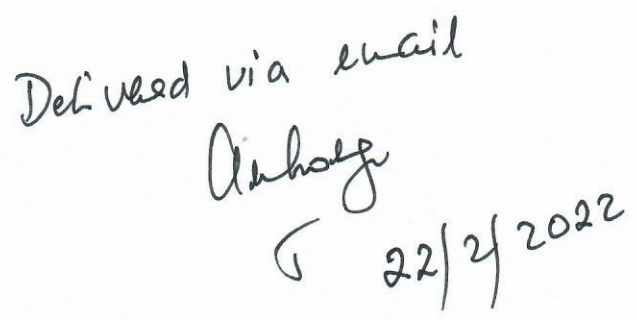 Delivered via email
22/2/2022